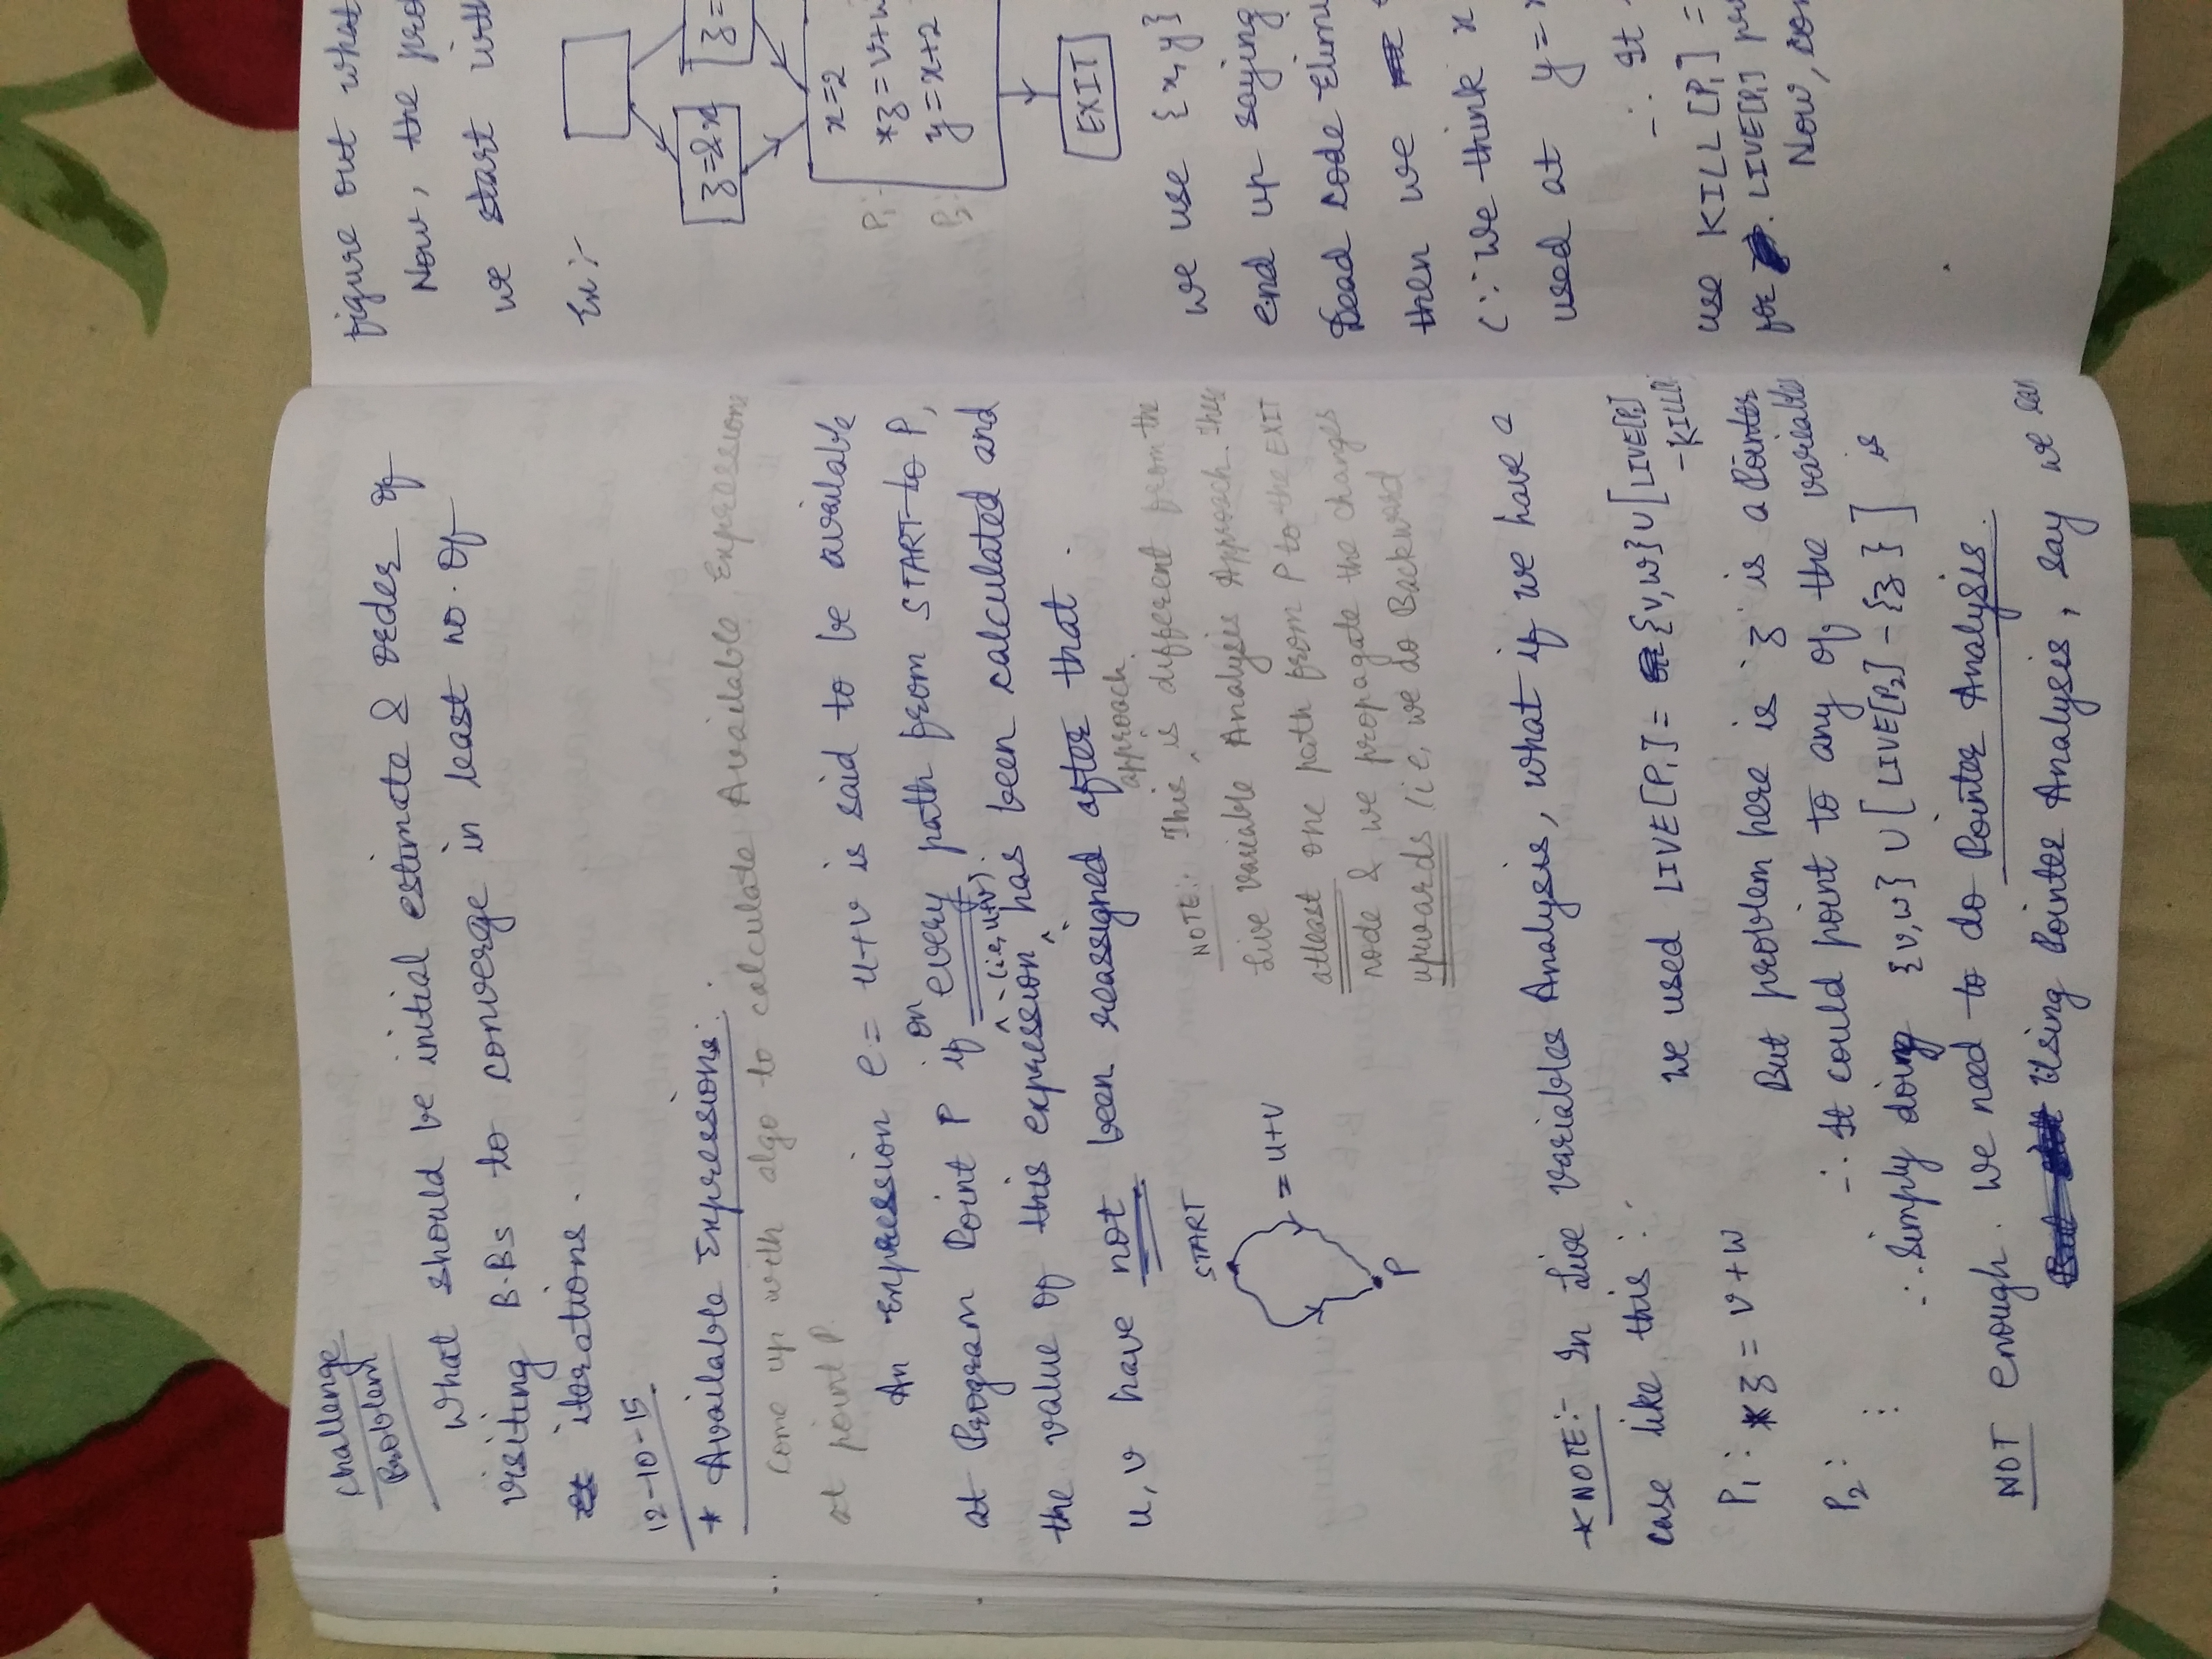 Challenge
Problem
What should be initial estimate & order of
visiting B.Bs to converge in least no. of
iterations.
12-10-15
* Available Expressions:
Come up with algo to calculate Available Expressions
at point P.
An Expression e = u+v is said to be available
at Program Point P if on every path from START to P,
the value of this expression (i.e, u+v) has been calculated and
u, v have not been reassigned after that.
START
= u+v
P
NOTE:- This approach is different from the
Live Variable Analysis Approach. There
atleast one path from P to the EXIT
node & we propagate the changes
upwards (i.e, we do Backward
* NOTE:- In Live Variables Analysis, what if we have a
case like this :-
we used LIVE[P1] = {v,w} U [LIVE[P2]
- KILL[
P1 : *z = v+w
But problem here is 'z' is a Pointer
P2 :
∴ It could point to any of the variables
∴ Simply doing {v,w} U [LIVE[P2] - {z}] is
NOT enough. We need to do Pointer Analysis.
Using Pointer Analysis, say we can
figure out what
Now, the pro
we start with
Ex:-
z=&x
z=
x=2
P1:- *z=v+w
P2:- y=x+2
EXIT
we use {x,y}
end up saying
Dead code Elimi
then we
(∵ We think x
used at y=x
∴ It
use KILL[P1] =
for LIVE[P1] pr
Now, con